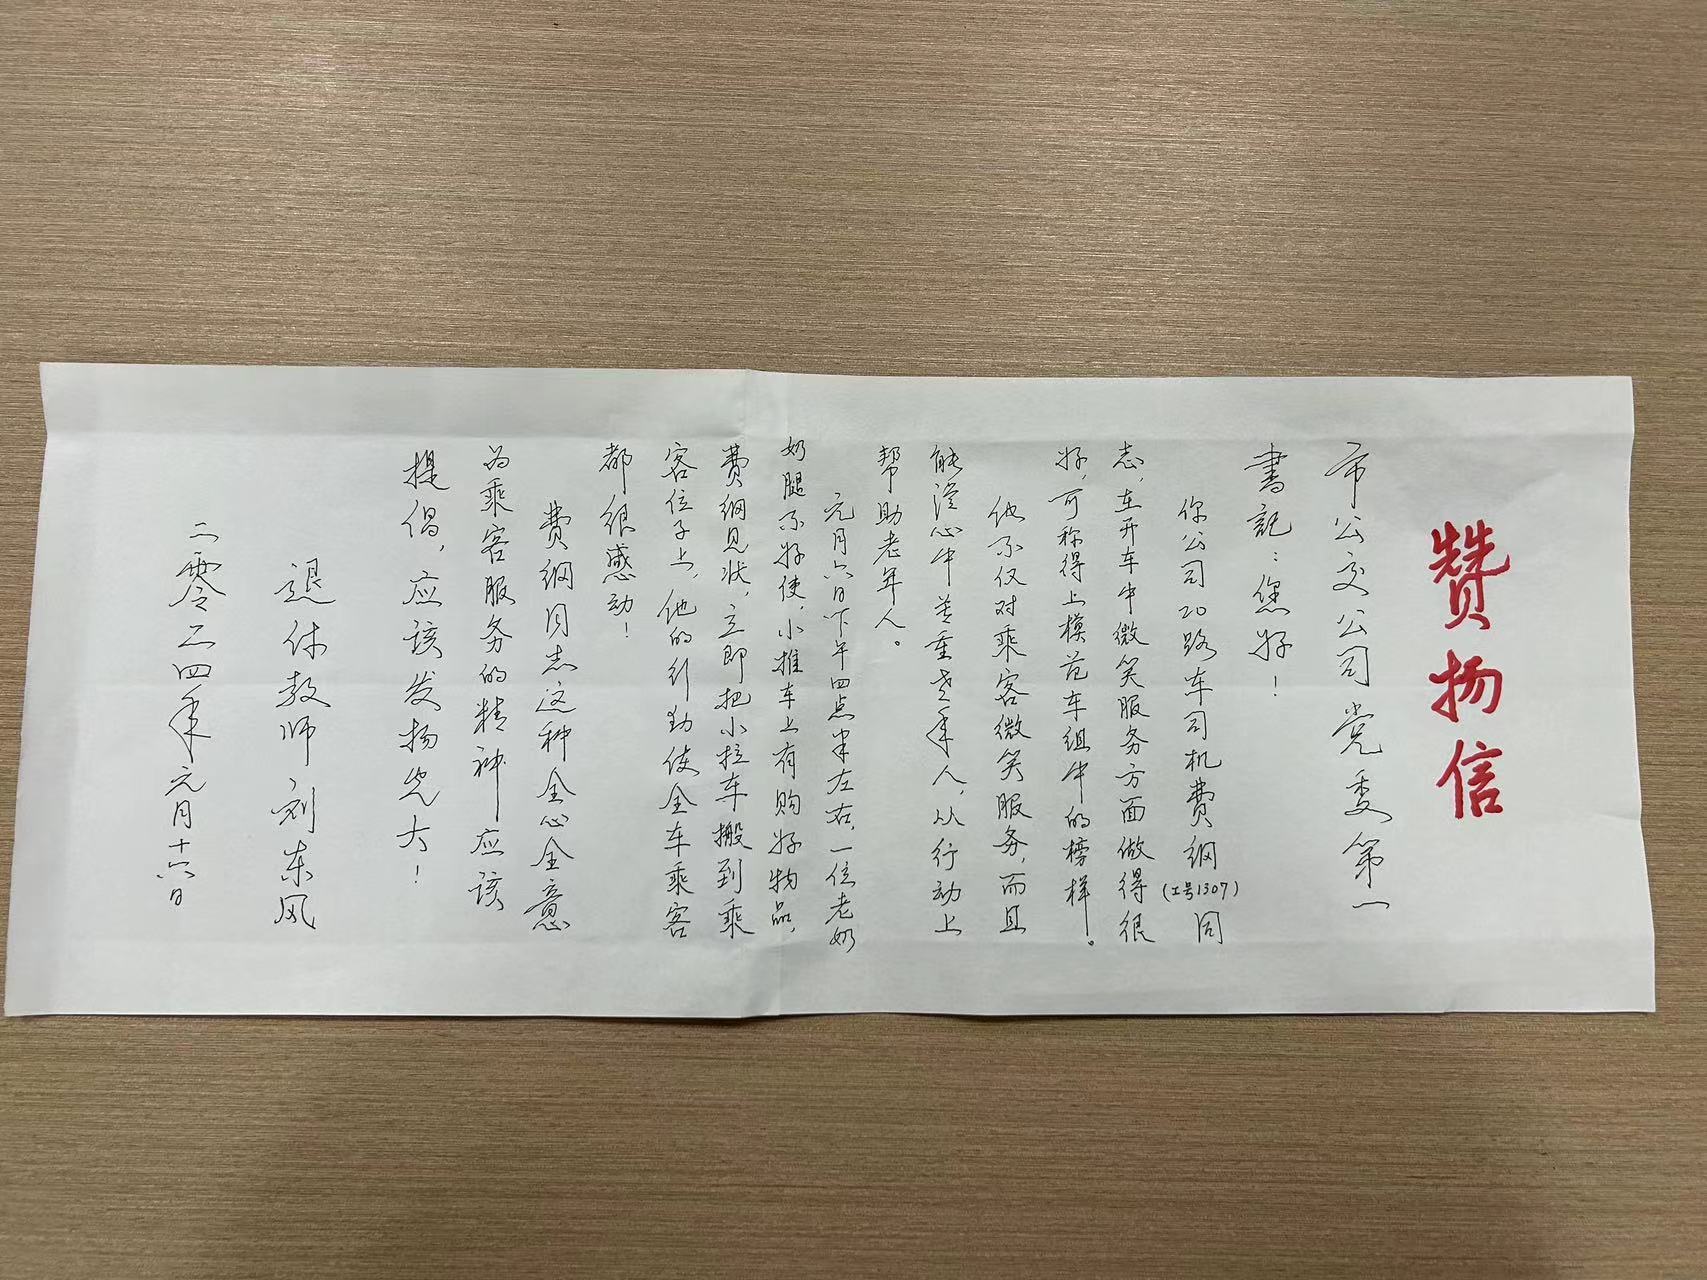 赞扬信
市公交公司党委第一
書記：您好！
你公司20路车司机费纲（工号1307）同
志，在开车中微笑服务方面做得很
好，可称得上模范车组中的榜样。
他不仅对乘客微笑服务，而且
能从心中尊重老年人，从行动上
帮助老年人。
元月六日下午四点半左右，一位老奶
奶腿不好使，小推车上有购好物品，
费纲见状，立即把小拉车搬到乘
客位子上，他的行动使全车乘客
都很感动！
费纲同志这种全心全意
为乘客服务的精神应该
提倡，应该发扬光大！
退休教师刘东风
二零二四年元月十六日